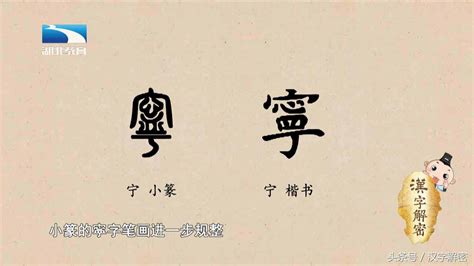 湖北教育
寧 寧
宁 小篆 宁 楷书
漢字解密
小篆的寧字笔画进一步规整
头条号/汉字解密